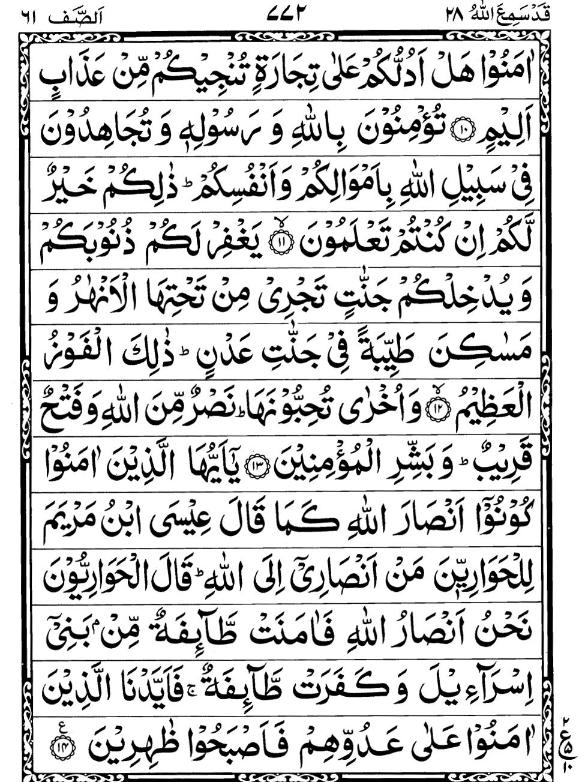 قَدْ سَمِعَ اللّٰهُ ٢٨ ٧٧٢ اَلصَّف ٦١
اٰمَنُوْا هَلْ اَدُلُّكُمْ عَلٰى تِجَارَةٍ تُنْجِيْكُمْ مِّنْ عَذَابٍ
اَلِيْمٍ ﴿١٠﴾ تُؤْمِنُوْنَ بِاللّٰهِ وَ رَسُوْلِهٖ وَ تُجَاهِدُوْنَ
فِيْ سَبِيْلِ اللّٰهِ بِاَمْوَالِكُمْ وَاَنْفُسِكُمْ ؕ ذٰلِكُمْ خَيْرٌ
لَّكُمْ اِنْ كُنْتُمْ تَعْلَمُوْنَ ﴿١١﴾ۙ يَغْفِرْ لَكُمْ ذُنُوْبَكُمْ
وَ يُدْخِلْكُمْ جَنّٰتٍ تَجْرِيْ مِنْ تَحْتِهَا الْاَنْهٰرُ وَ
مَسٰكِنَ طَيِّبَةً فِيْ جَنّٰتِ عَدْنٍ ؕ ذٰلِكَ الْفَوْزُ
الْعَظِيْمُ ﴿١٢﴾ۙ وَاُخْرٰى تُحِبُّوْنَهَا ؕ نَصْرٌ مِّنَ اللّٰهِ وَ فَتْحٌ
قَرِيْبٌ ؕ وَ بَشِّرِ الْمُؤْمِنِيْنَ ﴿١٣﴾ يٰۤاَيُّهَا الَّذِيْنَ اٰمَنُوْا
كُوْنُوْۤا اَنْصَارَ اللّٰهِ كَمَا قَالَ عِيْسَى ابْنُ مَرْيَمَ
لِلْحَوَارِيّٖنَ مَنْ اَنْصَارِيْۤ اِلَى اللّٰهِ ؕ قَالَ الْحَوَارِيُّوْنَ
نَحْنُ اَنْصَارُ اللّٰهِ فَاٰمَنَتْ طَّآىِٕفَةٌ مِّنْۢ بَنِيْۤ
اِسْرَآءِيْلَ وَ كَفَرَتْ طَّآىِٕفَةٌ ۚ فَاَيَّدْنَا الَّذِيْنَ
اٰمَنُوْا عَلٰى عَدُوِّهِمْ فَاَصْبَحُوْا ظٰهِرِيْنَ ﴿١٤﴾ ع
٢
ع ٥
١٠